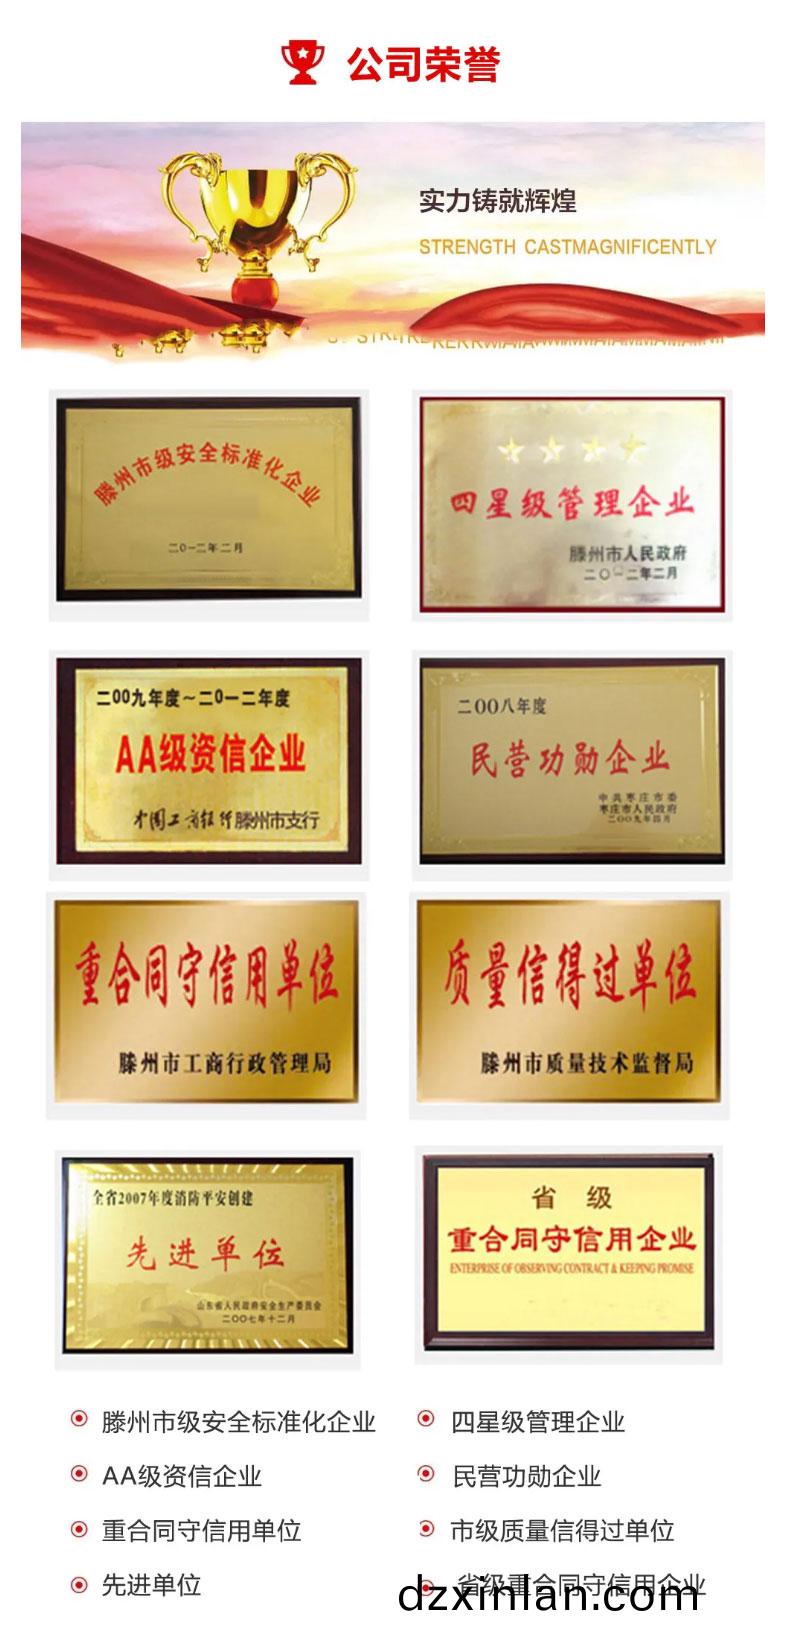 公司荣誉
实力铸就辉煌
STRENGTH CASTMAGNIFICENTLY
滕州市级安全标准化企业
二〇一二年二月
四星级管理企业
滕州市人民政府
二〇一二年二月
二00九年度~二0一二年度
AA级资信企业
中国工商银行滕州市支行
二00八年度
民营功勋企业
中共枣庄市委
枣庄市人民政府
二〇〇九年四月
重合同守信用单位
滕州市工商行政管理局
质量信得过单位
滕州市质量技术监督局
全省2007年度消防平安创建
先进单位
山东省人民政府安全生产委员会
二〇〇七年十二月
省 级
重合同守信用企业
ENTERPRISE OF OBSERVING CONTRACT & KEEPING PROMISE
滕州市级安全标准化企业
四星级管理企业
AA级资信企业
民营功勋企业
重合同守信用单位
市级质量信得过单位
先进单位
省级重合同守信用企业
dzxinlan.com